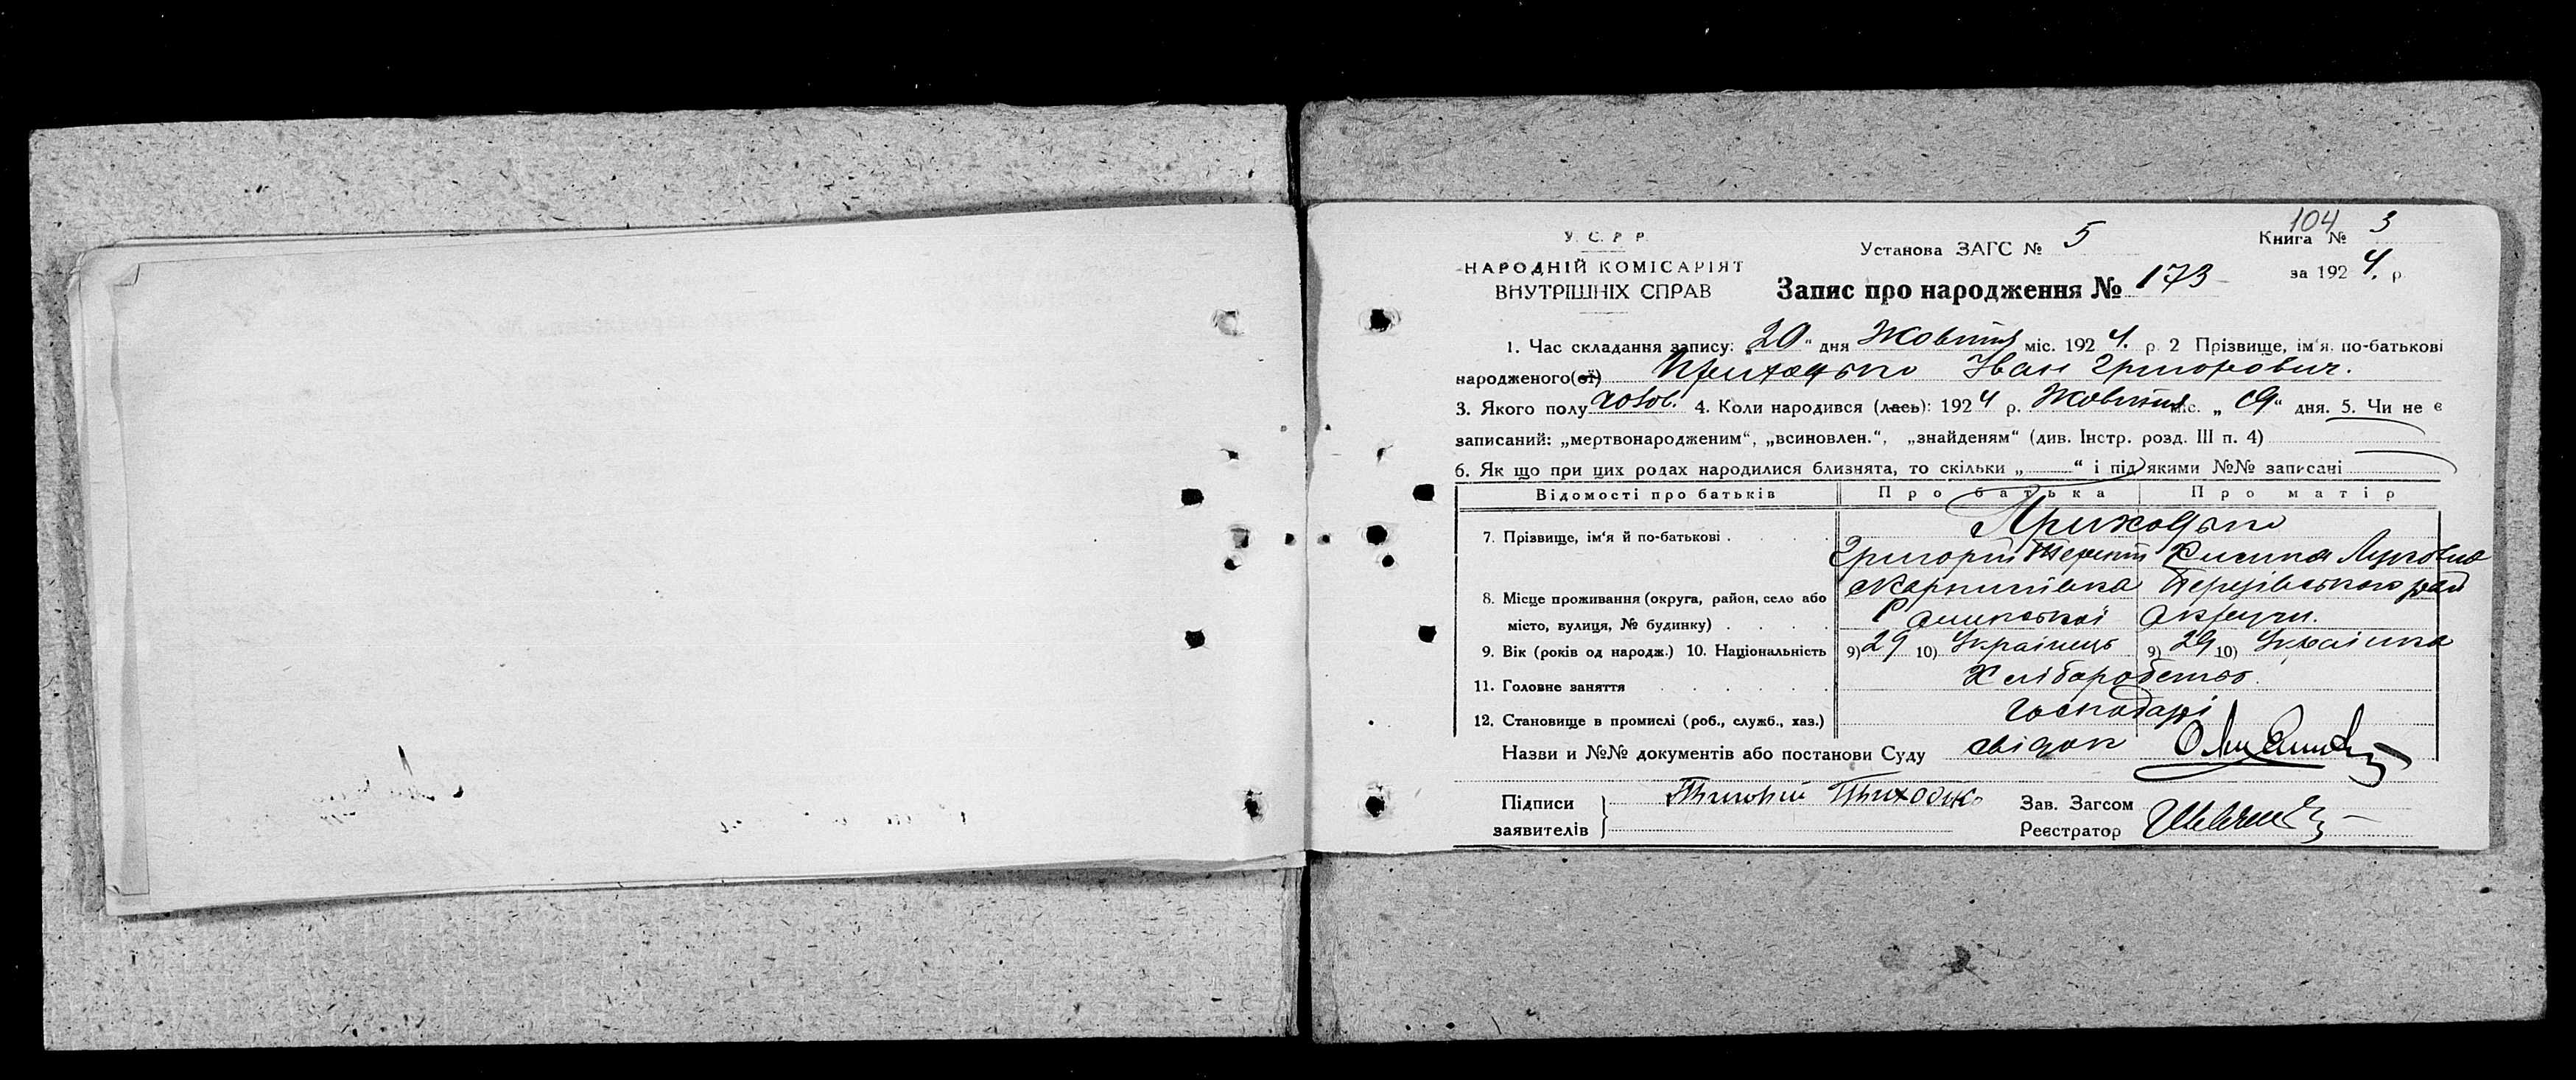 104
У. С. Р Р.
Установа ЗАГС № 5
Книга № 3
НАРОДНІЙ КОМІСАРІЯТ
ВНУТРІШНІХ СПРАВ
за 1924. р.
Запис про народження № 173
1. Час складання запису: „20" дня Жовтня міс. 1924. р. 2 Прізвище, ім'я, по-батькові
народженого(ої) Приходько Іван Григорович.
3. Якого полу чолов. 4. Коли народився (лась): 1924 р. Жовтня міс. „19" дня. 5. Чи не є
записаний: „мертвонародженим", „всиновлен.", „знайденям" (див. Інстр. розд. III п. 4)
6. Як що при цих родах народилися близнята, то скільки „ " і під якими №№ записані
Відомості про батьків Про батька Про матір
7. Прізвище, ім'я й по-батькові . Приходько
Григорій
8. Місце проживання (округа, район, село або
місто, вулиця, № будинку) . Роменської Округи.
9. Вік (років од народж.) 10. Національність 9) 29 10) Українець 9) 29 10) Українка
11. Головне заняття Хліборобство.
12. Становище в промислі (роб., служб., хаз.) Господарі
Назви и №№ документів або постанови Суду свідок
Підписи Григорій Приходько Зав. Загсом
заявителів Реєстратор